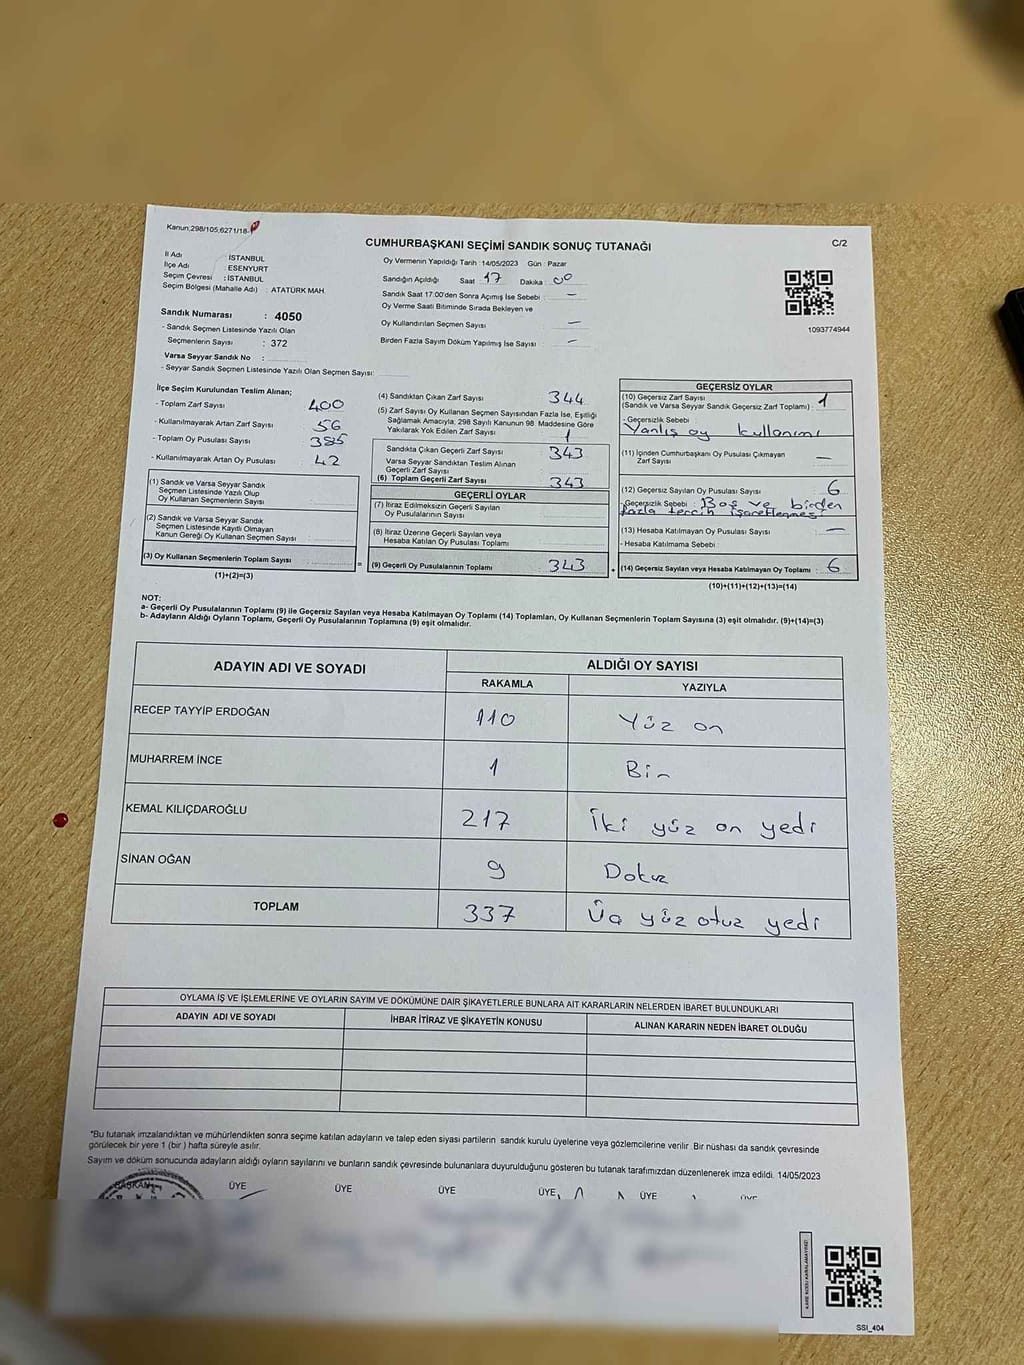 Kanun,298/105,6271/18-
CUMHURBAŞKANI SEÇİMİ SANDIK SONUÇ TUTANAĞI
C/2
İl Adı : İSTANBUL
İlçe Adı : ESENYURT
Seçim Çevresi : İSTANBUL
Seçim Bölgesi (Mahalle Adı) : ATATÜRK MAH.
Oy Vermenin Yapıldığı Tarih :14/05/2023 Gün : Pazar
Sandığın Açıldığı Saat 17 Dakika 00
Sandık Saat 17:00'den Sonra Açımış İse Sebebi : —
Oy Verme Saati Bitiminde Sırada Bekleyen ve
Oy Kullandırılan Seçmen Sayısı —
Birden Fazla Sayım Döküm Yapılmış İse Sayısı : —
1093774944
Sandık Numarası : 4050
- Sandık Seçmen Listesinde Yazılı Olan
Seçmenlerin Sayısı : 372
Varsa Seyyar Sandık No :
- Seyyar Sandık Seçmen Listesinde Yazılı Olan Seçmen Sayısı:
İlçe Seçim Kurulundan Teslim Alınan;
- Toplam Zarf Sayısı 400
- Kullanılmayarak Artan Zarf Sayısı 56
- Toplam Oy Pusulası Sayısı 385
- Kullanılmayarak Artan Oy Pusulası 42
(1) Sandık ve Varsa Seyyar Sandık
Seçmen Listesinde Yazılı Olup
Oy Kullanan Seçmenlerin Sayısı
(2) Sandık ve Varsa Seyyar Sandık
Seçmen Listesinde Kayıtlı Olmayan
Kanun Gereği Oy Kullanan Seçmen Sayısı :
(3) Oy Kullanan Seçmenlerin Toplam Sayısı :
(1)+(2)=(3)
(4) Sandıktan Çıkan Zarf Sayısı 344
(5) Zarf Sayısı Oy Kullanan Seçmen Sayısından Fazla İse, Eşitliği
Sağlamak Amacıyla, 298 Sayılı Kanunun 98. Maddesine Göre
Yakılarak Yok Edilen Zarf Sayısı 1
Sandıkta Çıkan Geçerli Zarf Sayısı 343
Varsa Seyyar Sandıktan Teslim Alınan
Geçerli Zarf Sayısı
(6) Toplam Geçerli Zarf Sayısı 343
GEÇERLİ OYLAR
(7) İtiraz Edilmeksizin Geçerli Sayılan
Oy Pusulalarının Sayısı
(8) İtiraz Üzerine Geçerli Sayılan veya
Hesaba Katılan Oy Pusulası Toplamı
= (9) Geçerli Oy Pusulalarının Toplamı 343 +
GEÇERSİZ OYLAR
(10) Geçersiz Zarf Sayısı
(Sandık ve Varsa Seyyar Sandık Geçersiz Zarf Toplamı) : 1
- Geçersizlik Sebebi :
Yanlış oy kullanımı
(11) İçinden Cumhurbaşkanı Oy Pusulası Çıkmayan
Zarf Sayısı —
(12) Geçersiz Sayılan Oy Pusulası Sayısı 6
- Geçersizlik Sebebi : Boş ve birden
fazla tercih işaretlenmesi
(13) Hesaba Katılmayan Oy Pusulası Sayısı —
- Hesaba Katılmama Sebebi :
(14) Geçersiz Sayılan veya Hesaba Katılmayan Oy Toplamı : 6
(10)+(11)+(12)+(13)=(14)
NOT:
a- Geçerli Oy Pusulalarının Toplamı (9) ile Geçersiz Sayılan veya Hesaba Katılmayan Oy Toplamı (14) Toplamları, Oy Kullanan Seçmenlerin Toplam Sayısına (3) eşit olmalıdır. (9)+(14)=(3)
b- Adayların Aldığı Oyların Toplamı, Geçerli Oy Pusulalarının Toplamına (9) eşit olmalıdır.
ADAYIN ADI VE SOYADI ALDIĞI OY SAYISI
RAKAMLA YAZIYLA
RECEP TAYYİP ERDOĞAN 110 Yüz on
MUHARREM İNCE 1 Bir
KEMAL KILIÇDAROĞLU 217 İki yüz on yedi
SİNAN OĞAN 9 Dokuz
TOPLAM 337 Üç yüz otuz yedi
OYLAMA İŞ VE İŞLEMLERİNE VE OYLARIN SAYIM VE DÖKÜMÜNE DAİR ŞİKAYETLERLE BUNLARA AİT KARARLARIN NELERDEN İBARET BULUNDUKLARI
ADAYIN ADI VE SOYADI İHBAR İTİRAZ VE ŞİKAYETİN KONUSU ALINAN KARARIN NEDEN İBARET OLDUĞU
*Bu tutanak imzalandıktan ve mühürlendikten sonra seçime katılan adayların ve talep eden siyasi partilerin sandık kurulu üyelerine veya gözlemcilerine verilir. Bir nüshası da sandık çevresinde
görülecek bir yere 1 (bir ) hafta süreyle asılır.
Sayım ve döküm sonucunda adayların aldığı oyların sayılarını ve bunların sandık çevresinde bulunanlara duyurulduğunu gösteren bu tutanak tarafımızdan düzenlenerek imza edildi. 14/05/2023
BAŞKAN ÜYE ÜYE ÜYE ÜYE ÜYE ÜYE
KARE KODU KARALAMAYINIZ!
SSI_404